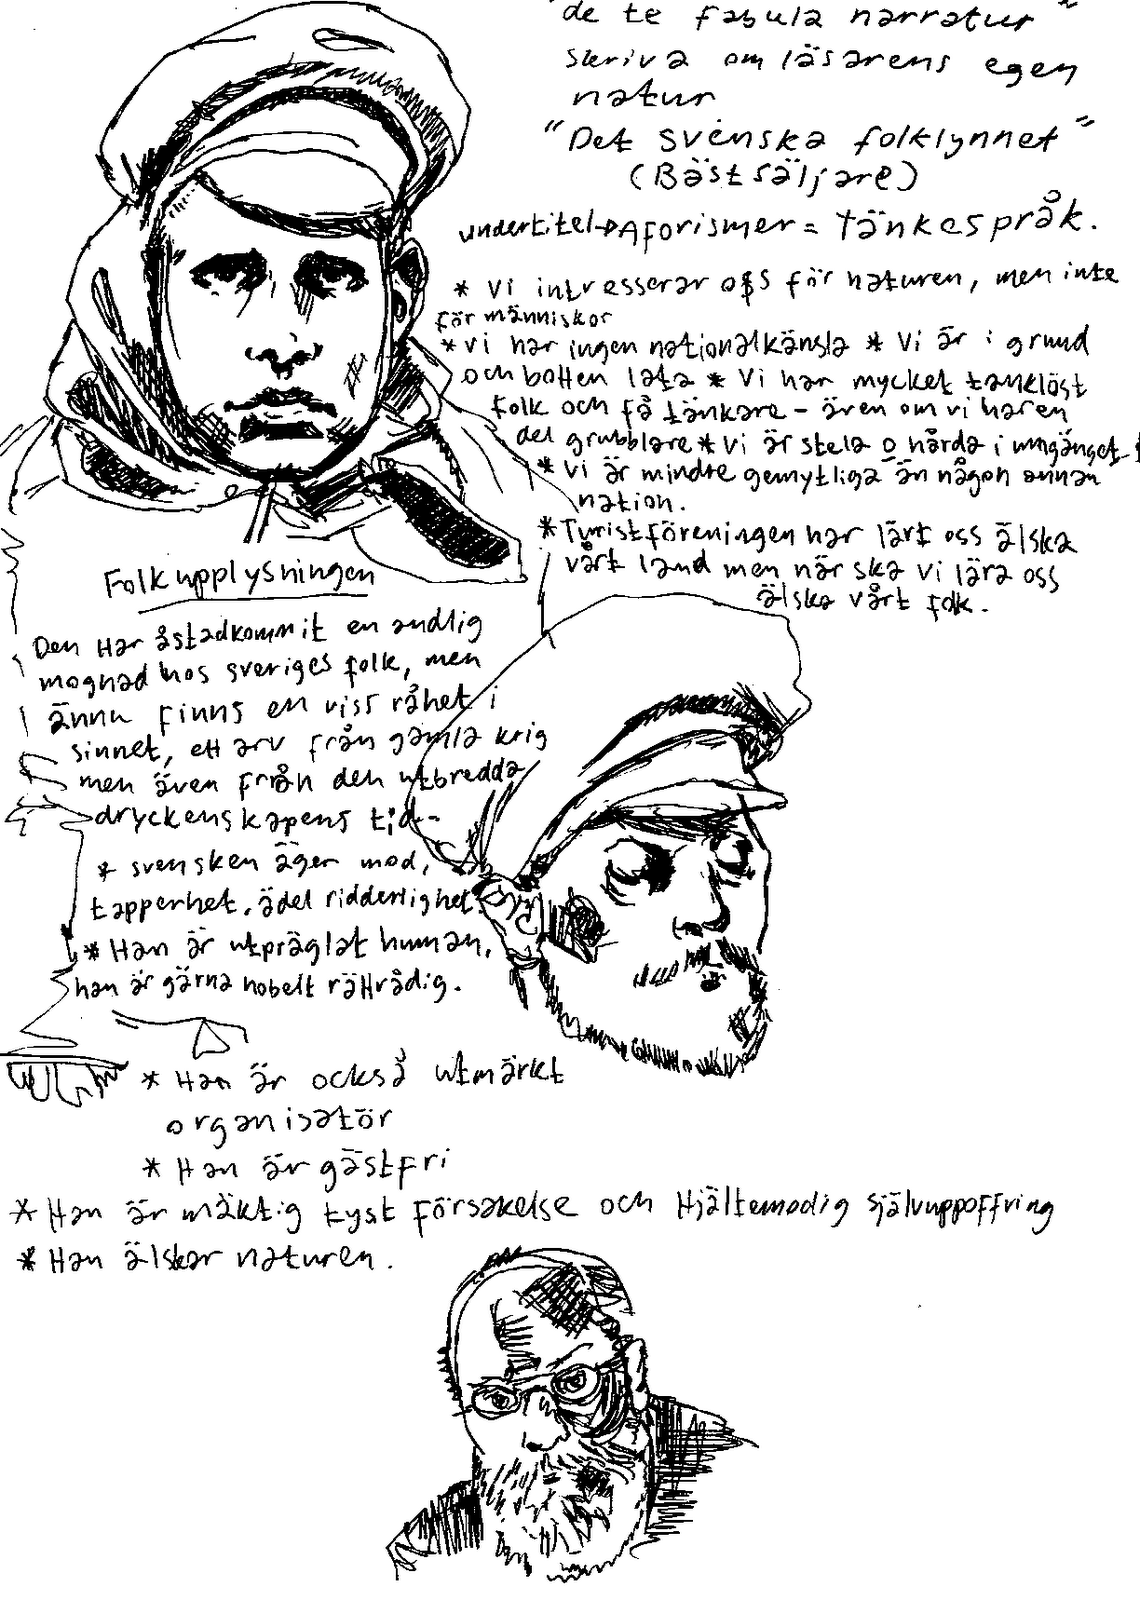 "de te fabula narratur"
skriva om läsarens egen
natur
"Det svenska folklynnet"
(Bästsäljare)
undertitel→Aforismer = Tänkespråk.
* Vi intresserar oss för naturen, men inte
för människor
* Vi har ingen nationalkänsla * Vi är i grund
och botten lata * Vi har mycket tanklöst
folk och få tänkare - även om vi har en
del grubblare * Vi är stela o hårda i umgänget
* Vi är mindre gemytliga än någon annan
nation.
* Turistföreningen har lärt oss älska
vårt land men när ska vi lära oss
älska vårt folk.
Folkupplysningen
Den Har åstadkommit en andlig
mognad hos sveriges folk, men
ännu finns en viss råhet i
sinnet, ett arv från gamla krig
men även från den utbredda
dryckenskapens tid-
* svensken äger mod,
tapperhet, ädel ridderlighet.
* Han är utpräglat human,
han är gärna nobelt rättrådig.
* Han är också utmärkt
organisatör
* Han är gästfri
* Han är mäktig tyst försakelse och Hjältemodig självuppoffring
* Han älskar naturen.